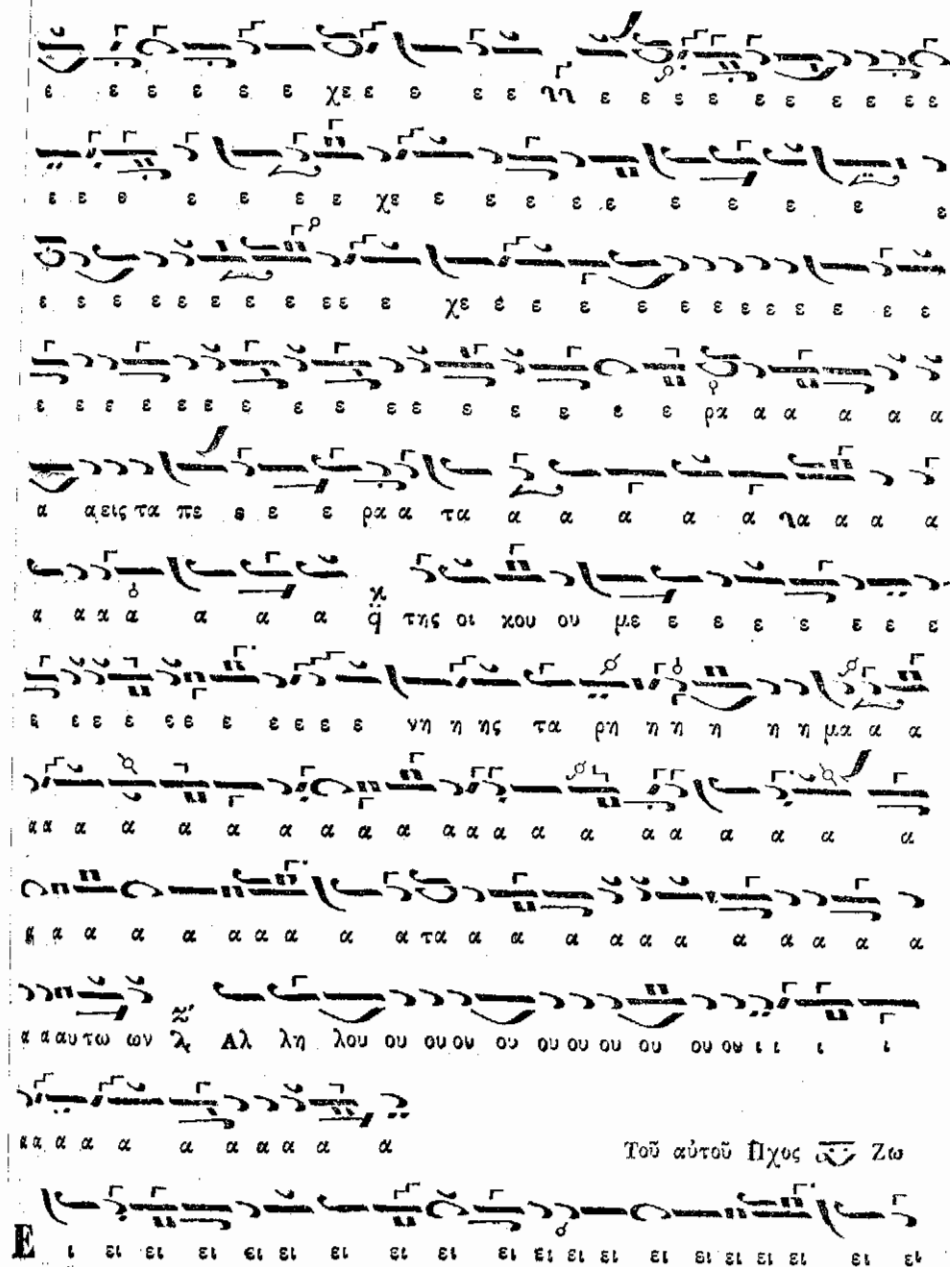 ε ε ε ε ε ε ε χε ε ε ε ε γγ ε ε ε ε ε ε ε ε ε ε ε
ε ε ε ε ε ε ε χε ε ε ε ε ε ε ε ε ε ε ε
ε ε ε ε ε ε ε ε ε εε ε χε ε ε ε ε ε ε ε ε ε ε ε ε
ε ε ε ε ε ε ε ε ε ε ε ε ε ε ε ε ε ρα α α α α α
α α εις τα πε ε ε ε ρα α τα α α α α α γα α α α
α α α α α α α α q̈ της οι κου ου με ε ε ε ε ε ε ε
ε ε ε ε ε ε ε ε ε ε ε νη η ης τα ρη η η η η η μα α α
α α α α α α α α α α α α α α α α α α α α α α
α α α α α α α α α α τα α α α α α α α α α α
α α αυ τω ων Αλ λη λου ου ου ου ου ου ου ου ου ου ου ι ι ι ι
α α α α α α α α α α α
Τοῦ αὐτοῦ Ηχος Ζω
Ε ι ει ει ει ει ει ει ει ει ει ει ει ει ει ει ει ει ει ει ει ει